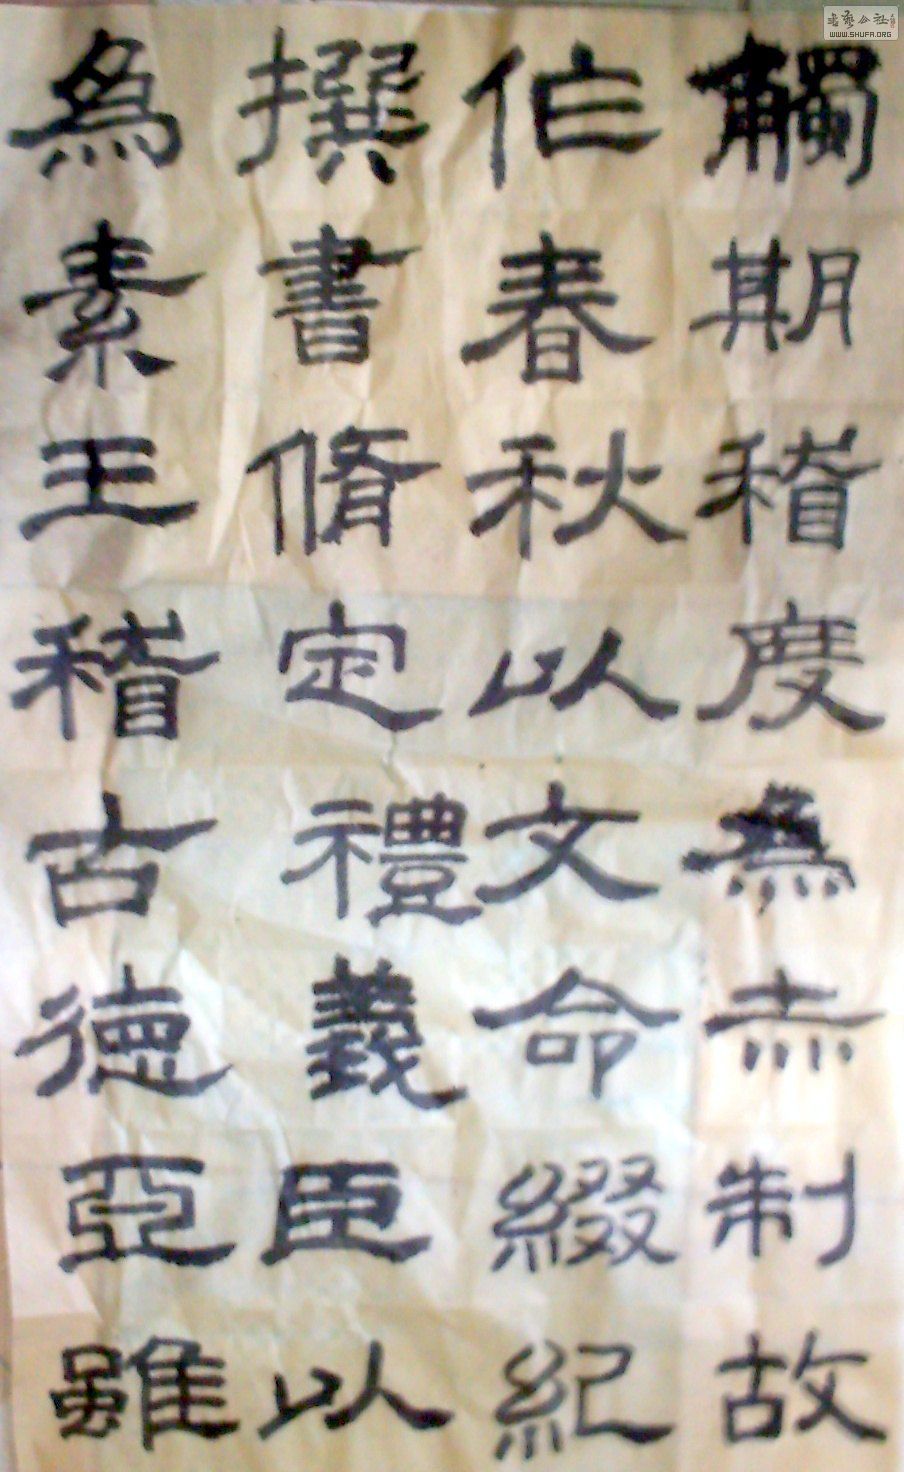 觸期稽度為赤制故
作春秋以文命綴紀
撰書脩定禮義臣以
為素王稽古德亞雖
書藝公社
WWW.SHUFA.ORG